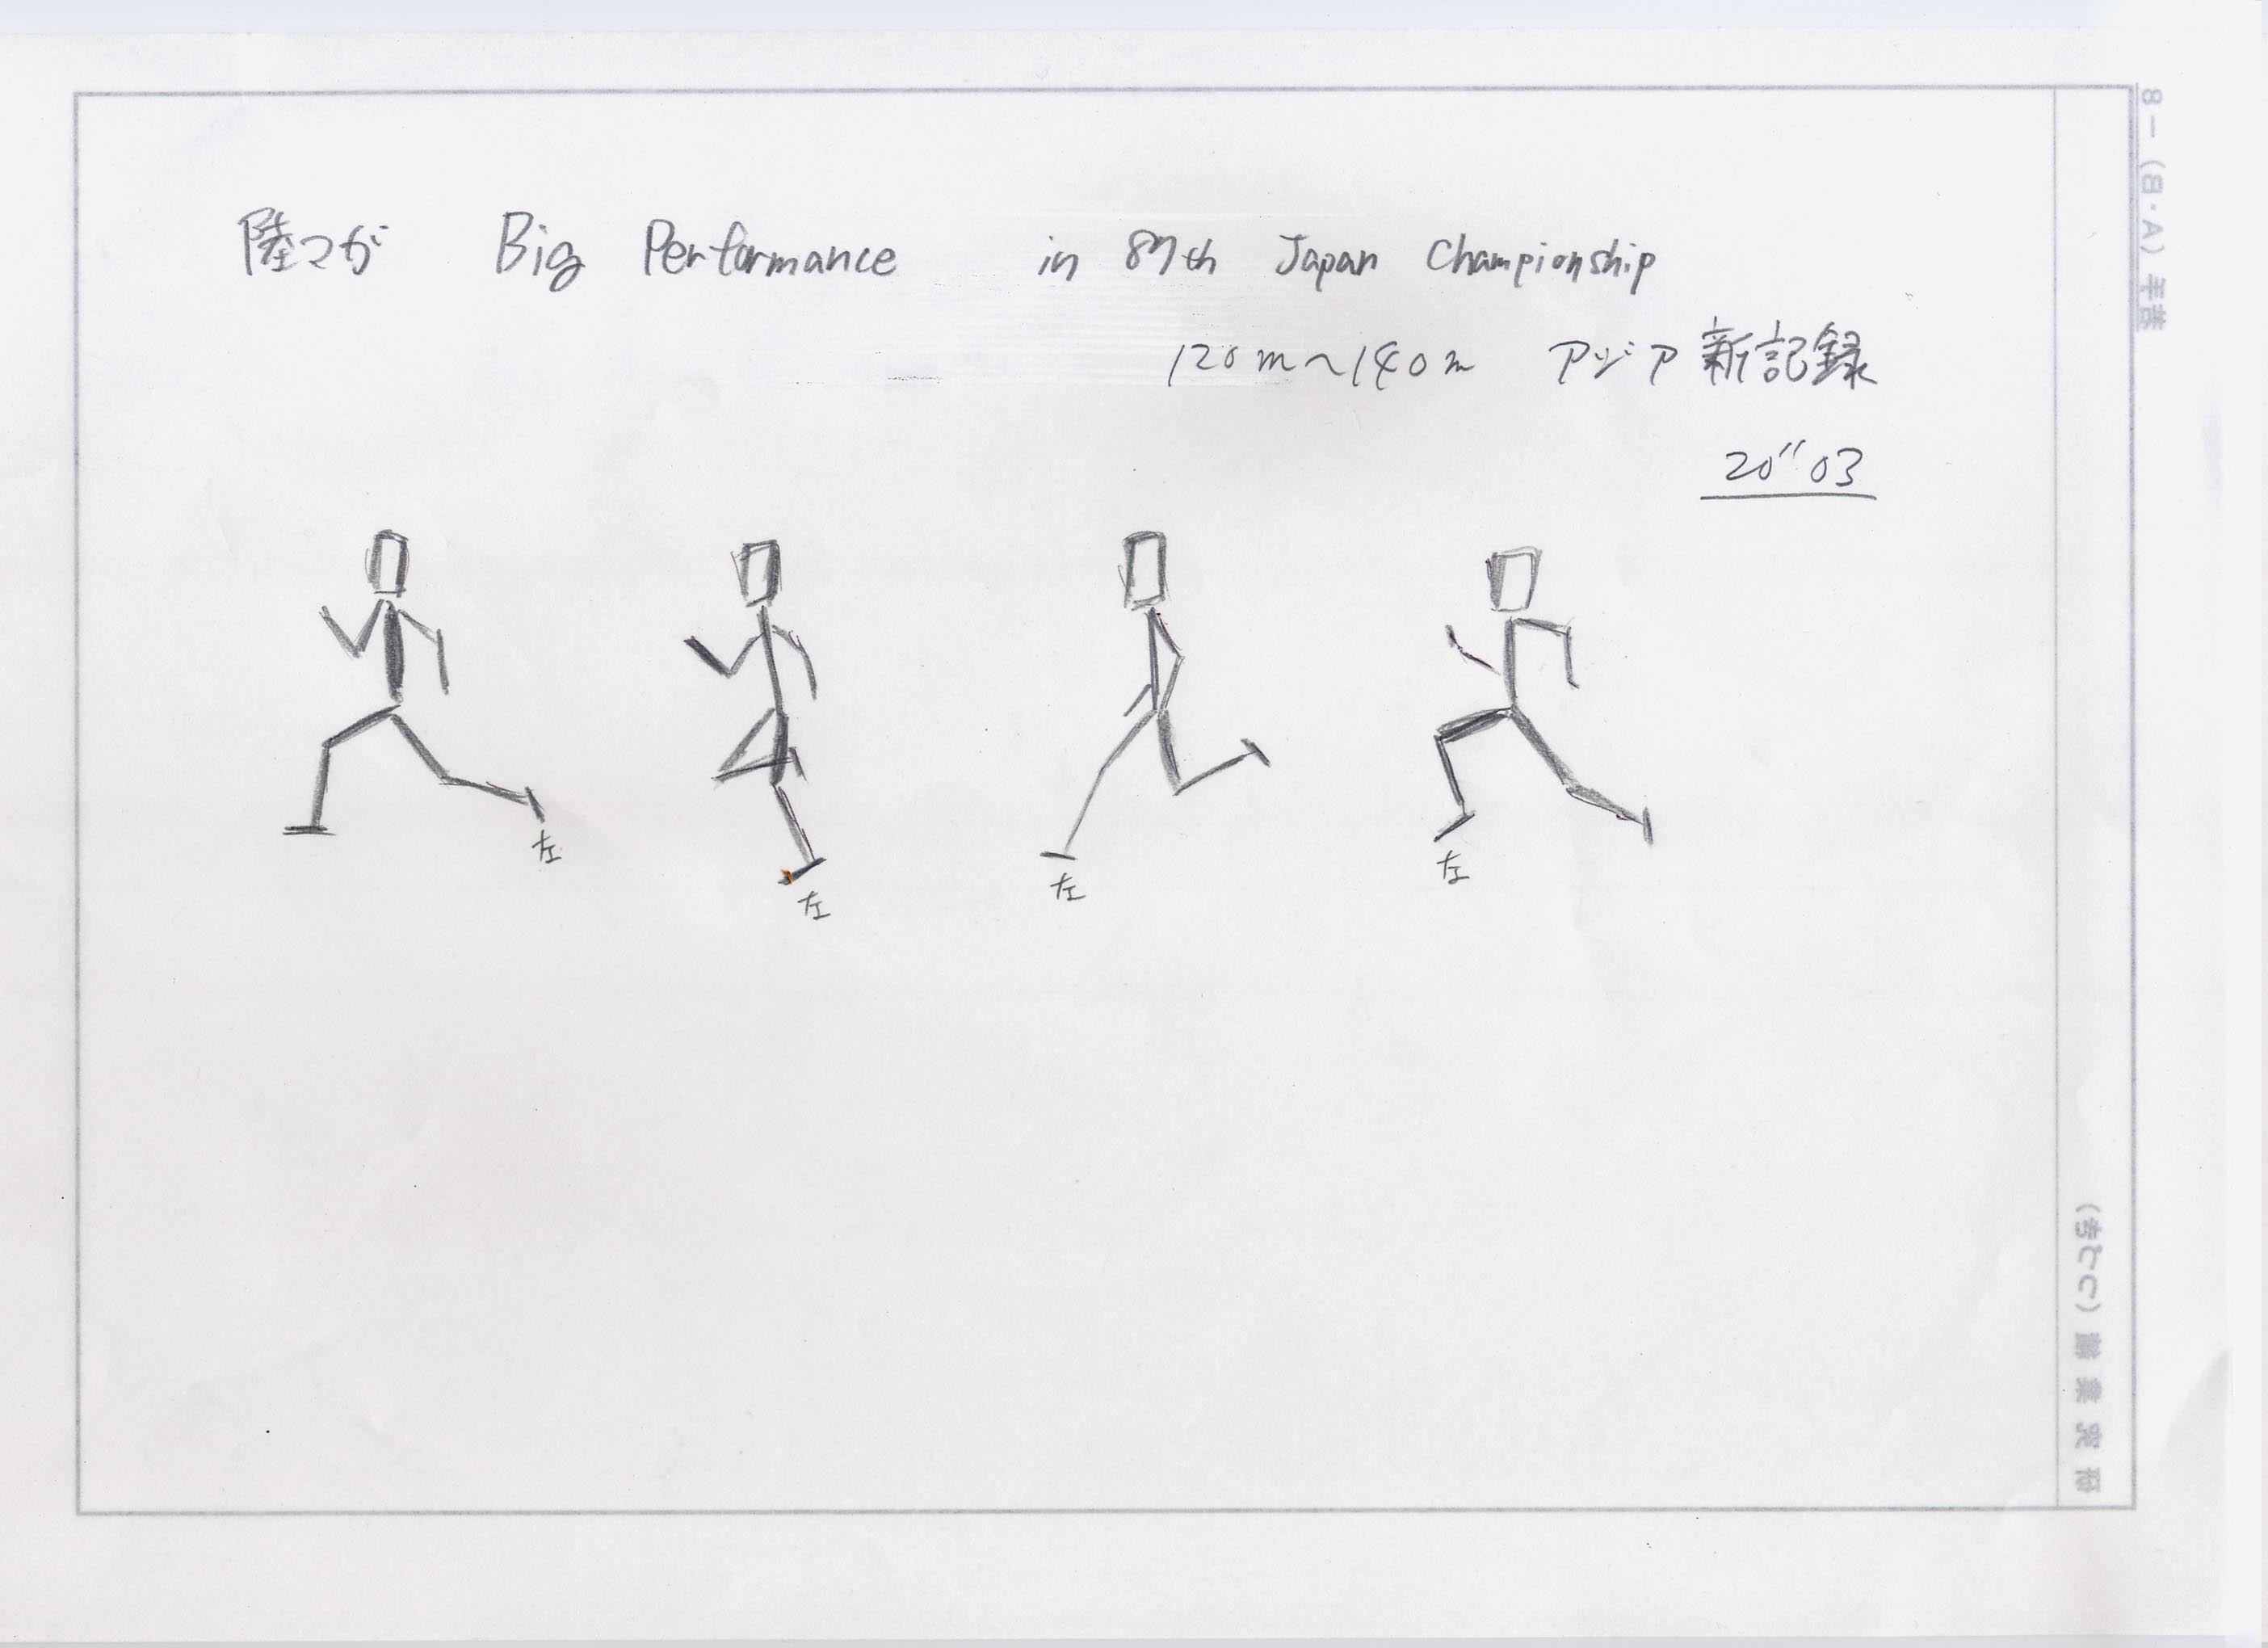 陸マガ Big Performance in 87th Japan Championship
120m〜140m アジア新記録
20"03
左
左
左
左